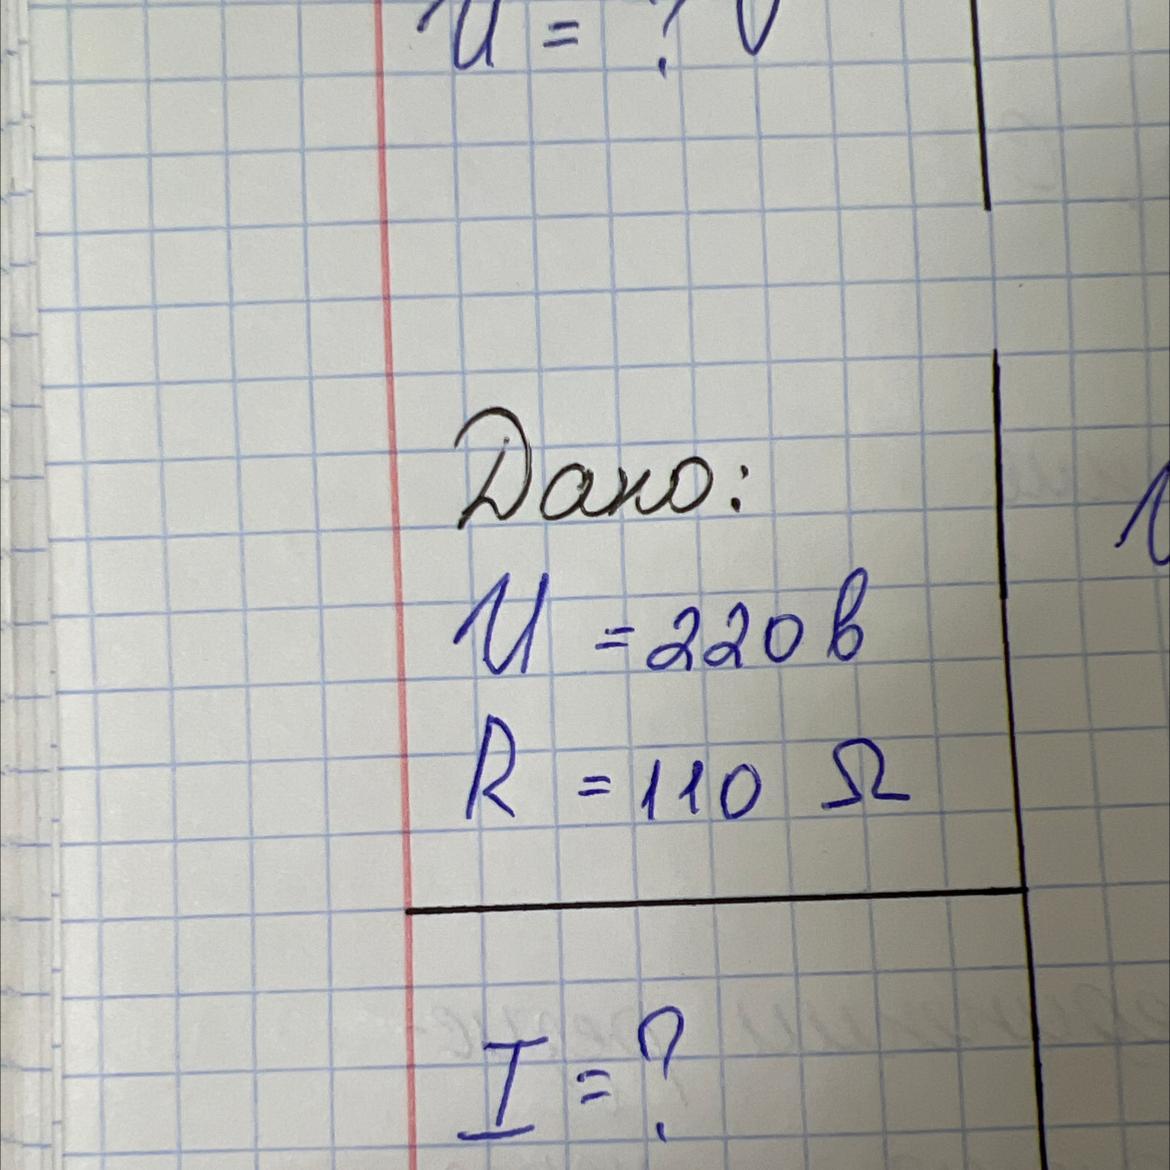 U = ? V
Дано:
U = 220 в
R = 110 Ω
I = ?